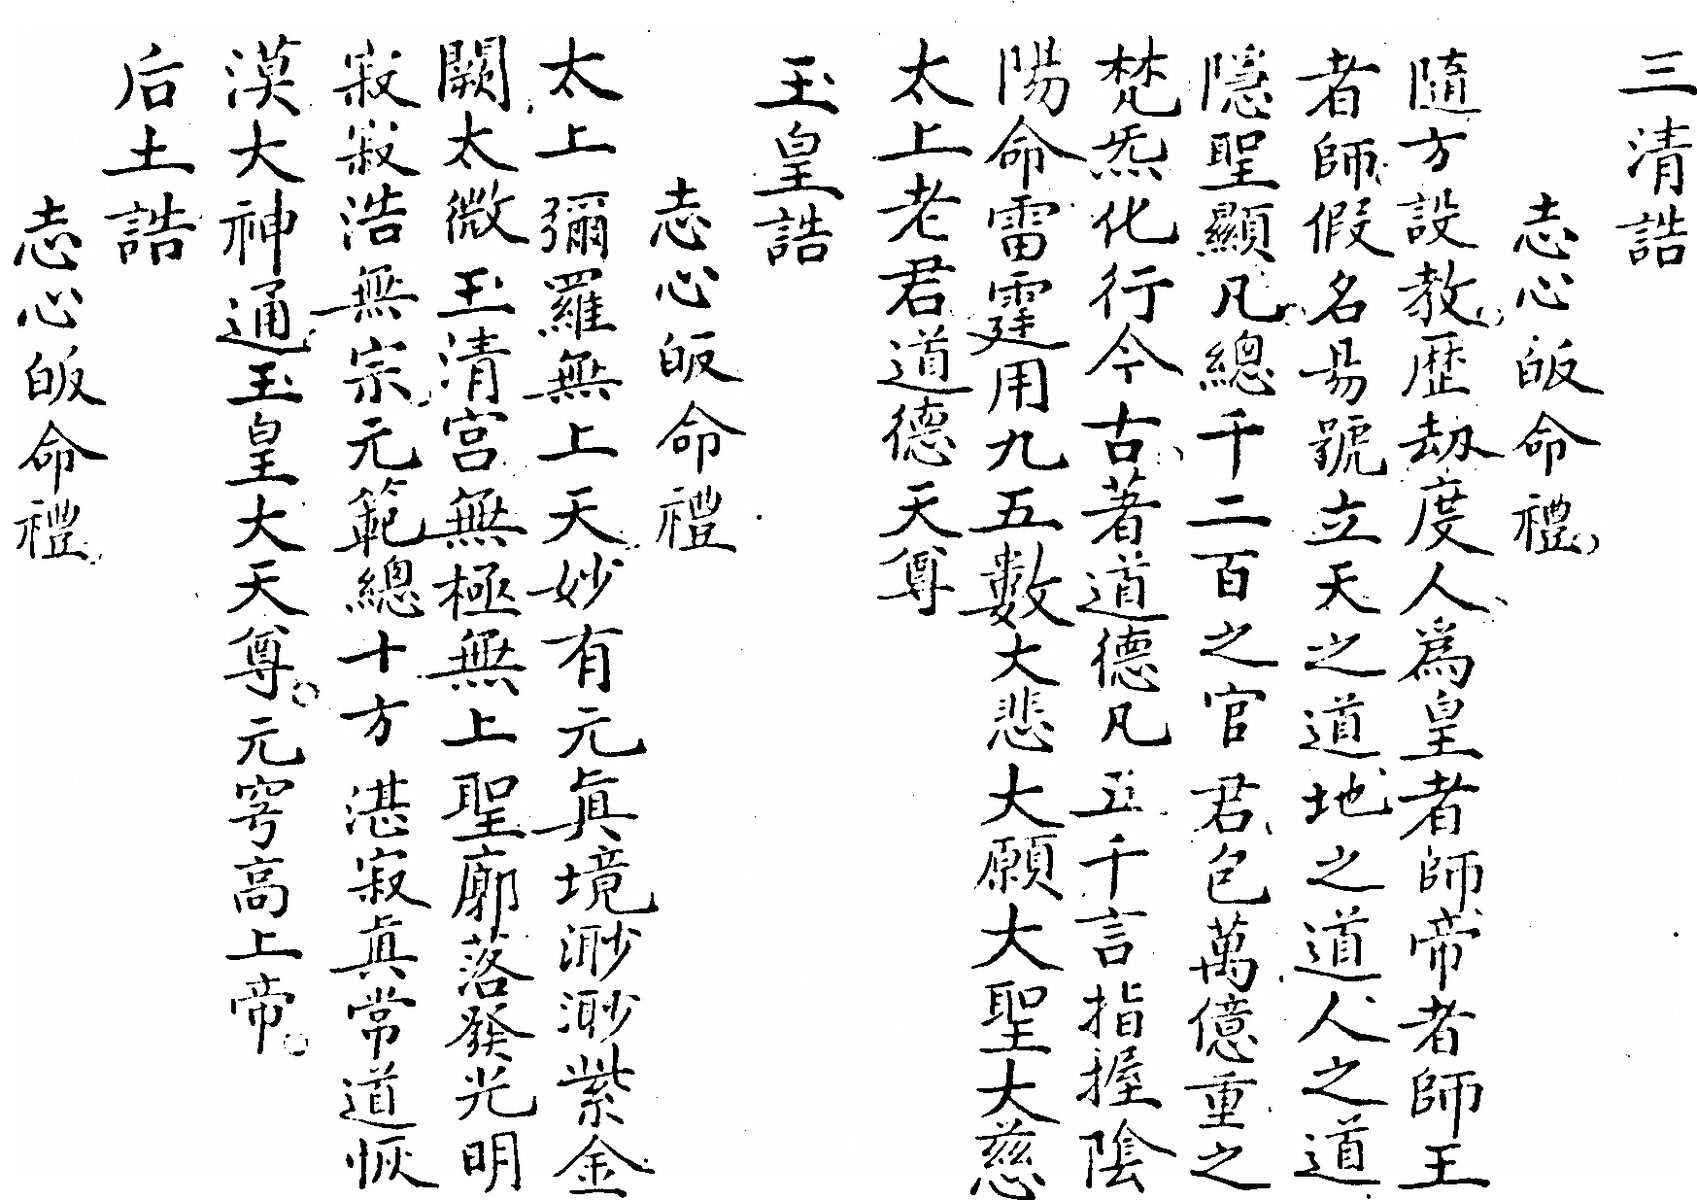 三清誥
志心皈命禮
隨方設教歷劫度人為皇者師帝者師王
者師假名易號立天之道地之道人之道
隱聖顯凡總千二百之官君包萬億重之
梵炁化行今古著道德凡五千言指握陰
陽命雷霆用九五數大悲大願大聖大慈
太上老君道德天尊
玉皇誥
志心皈命禮
太上彌羅無上天妙有元眞境渺渺紫金
闕太微玉清宮無極無上聖廓落發光明
寂寂浩無宗元範總十方湛寂眞常道恢
漠大神通玉皇大天尊。元穹高上帝。
后土誥
志心皈命禮